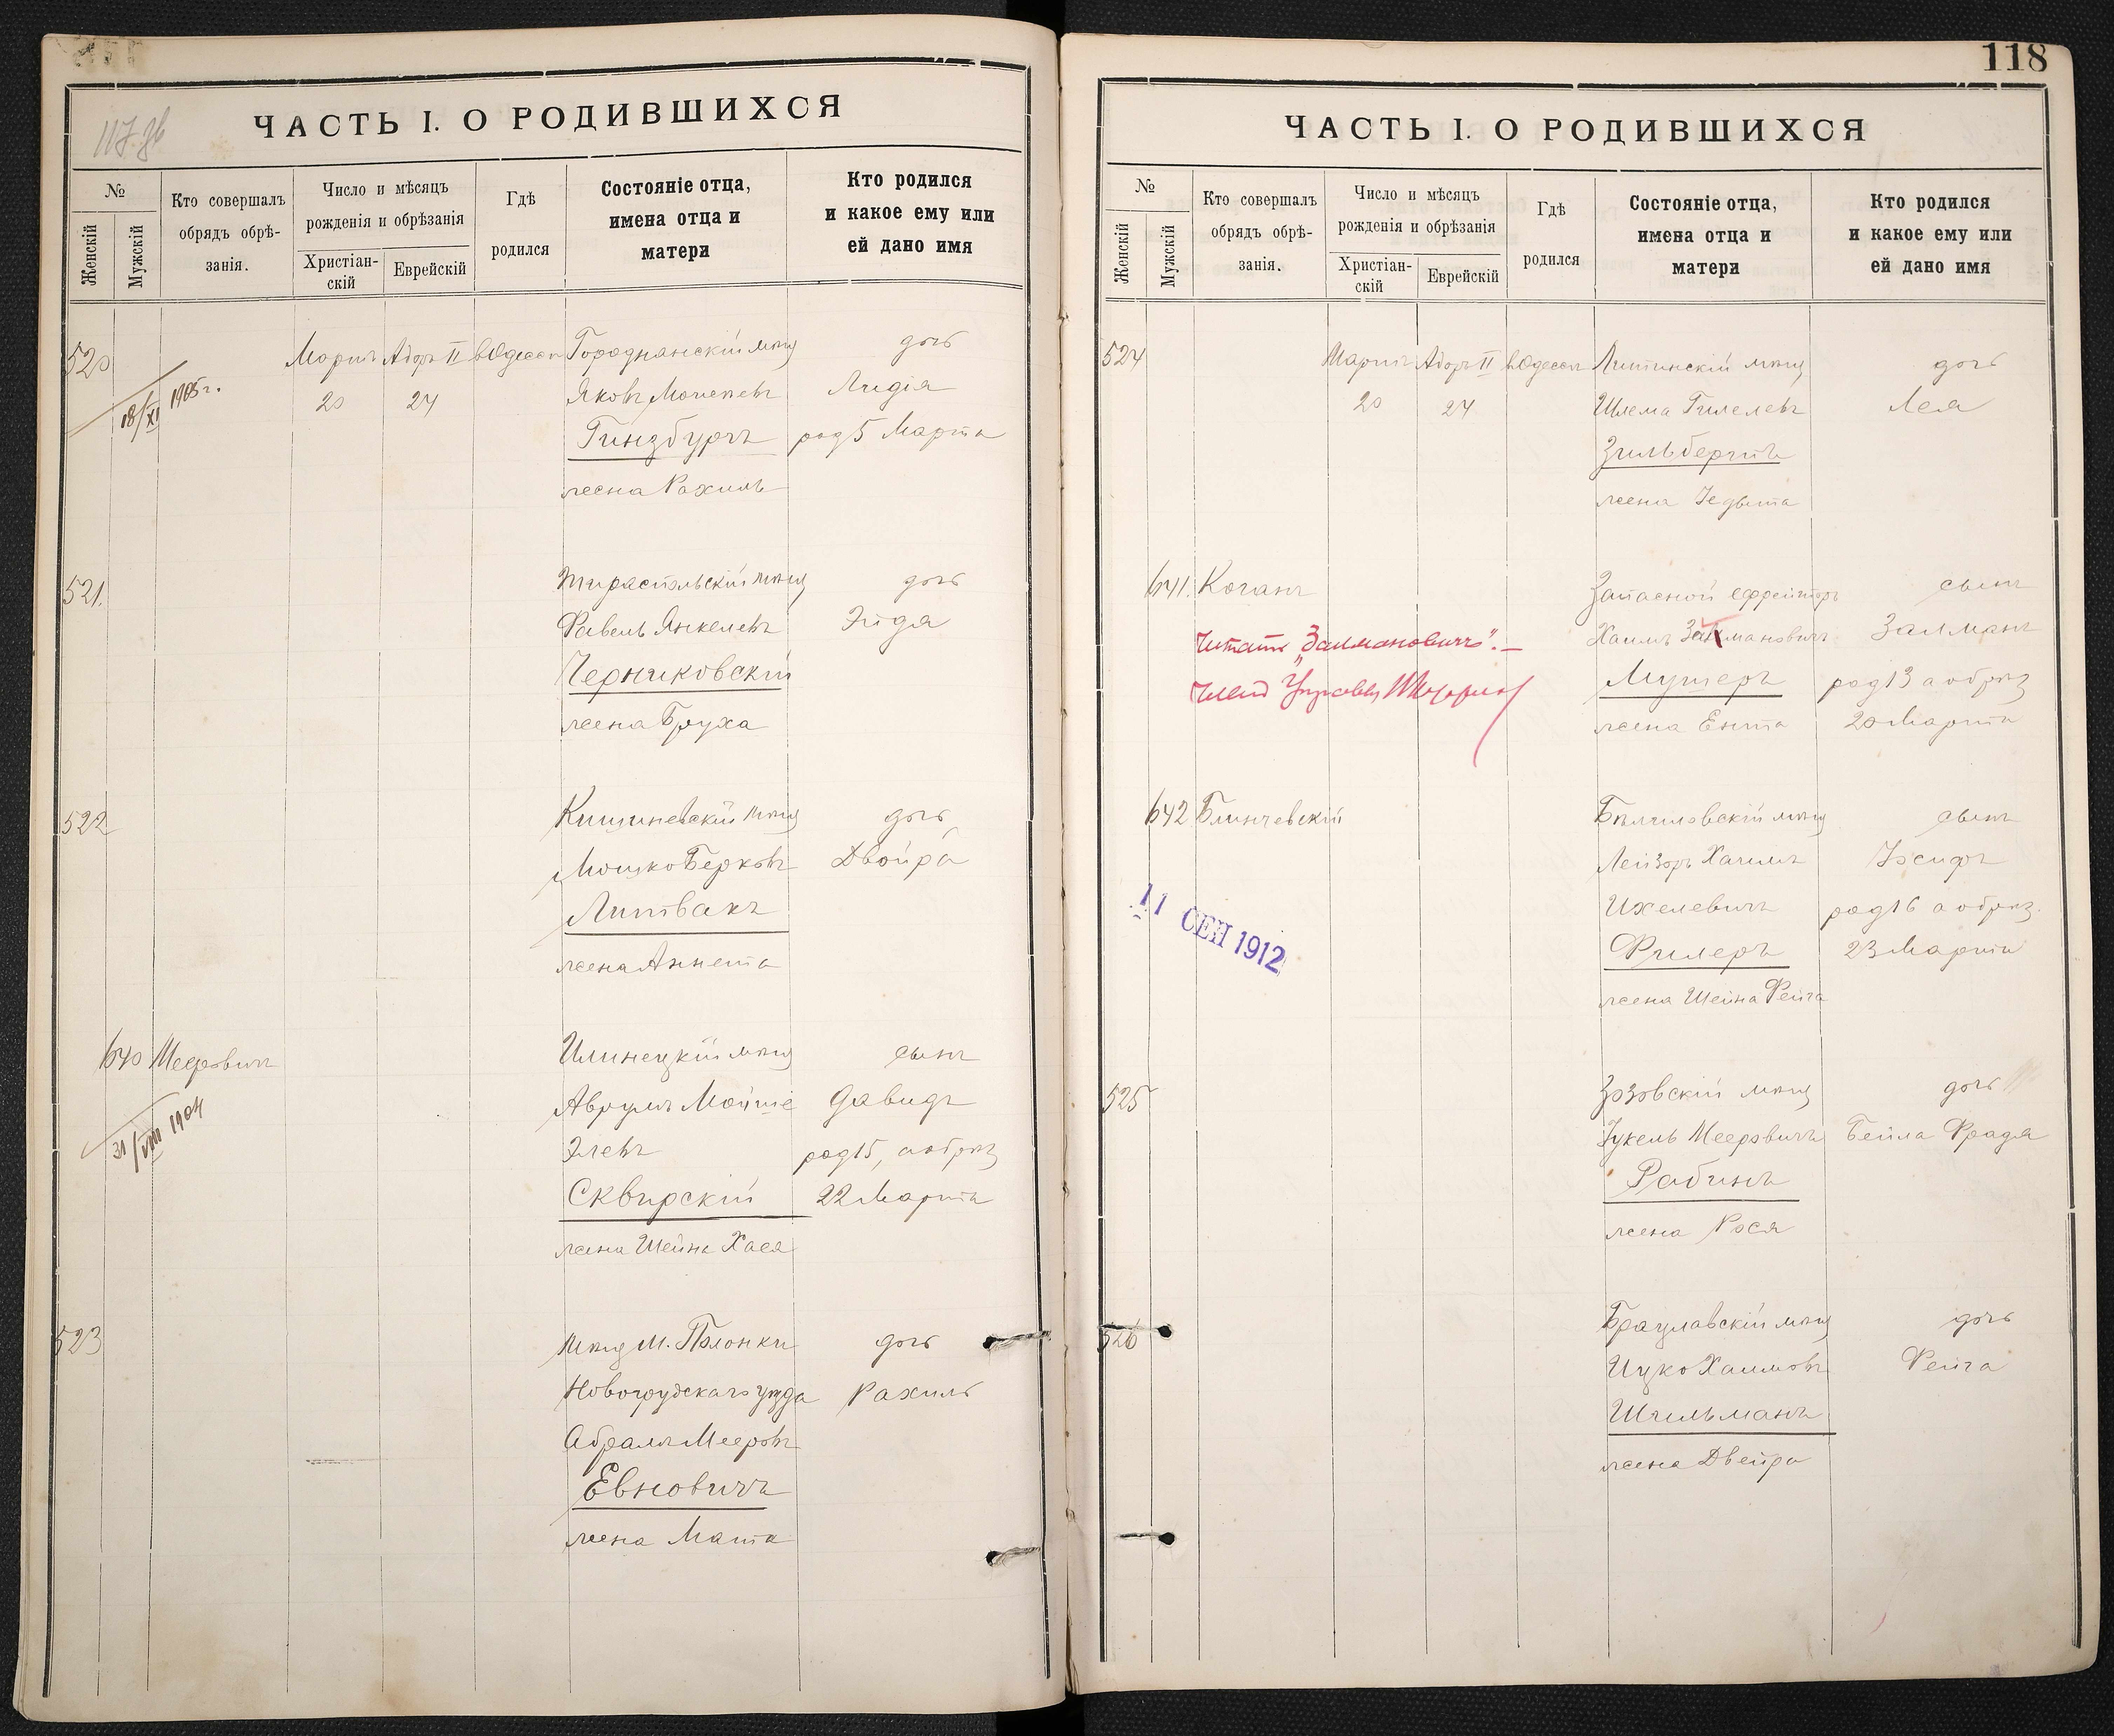 117 об
ЧАСТЬ I. О РОДИВШИХСЯ
№
Женскій
Мужскій
Кто совершалъ
обрядъ обрѣ-
занія.
Число и мѣсяцъ
рожденія и обрѣзанія
Христіан-
скій
Еврейскій
Гдѣ
родился
Состояніе отца,
имена отца и
матери
Кто родился
и какое ему или
ей дано имя
520 Мартъ Адоръ II в Одессѣ Городнянскій мѣщ дочь
18/XI 1905 г. 20 24 Яковъ Мошковъ Лидія
Гинзбургъ род 5 Марта
жена Рахиль
521. Тираспольскій мѣщ дочь
Фавель Янкелевъ Эйдя
Черниковскій
жена Бруха
522 Кишиневскій мѣщ дочь
Мошко Берковъ Двойра
Литвакъ
жена Аннета
640 Мееровичъ Илинецкій мѣщ сынъ
31/VIII 1904 Аврумъ Мойше Давидъ
Элевъ род 15, а обрѣз
Сквирскій 22 Марта
жена Шейна Хася
523 Мѣщ м. Полонки дочь
Новогрудскаго уѣзда Рахиль
Абрамъ Мееровъ
Евновичъ
жена Мата
118
ЧАСТЬ I. О РОДИВШИХСЯ
№
Женскій
Мужскій
Кто совершалъ
обрядъ обрѣ-
занія.
Число и мѣсяцъ
рожденія и обрѣзанія
Христіан-
скій
Еврейскій
Гдѣ
родился
Состояніе отца,
имена отца и
матери
Кто родился
и какое ему или
ей дано имя
524 Мартъ Адоръ II в Одессѣ Литинскій мѣщ дочь
20 24 Шлема Гилелевъ Лея
Зильбергитъ
жена Іедвита
641. Коганъ Запасной ефрейторъ сынъ
Читать „Залмановичъ".— Хаимъ Залмановичъ Залманъ
Членъ Управы Мушеръ род 13 а обрѣз
жена Ента 20 Марта
642 Блинчевскій Бѣлиловскій мѣщ сынъ
Лейзоръ Хаимъ Іосифъ
11 СЕН 1912 Ихелевичъ род 16 а обрѣз.
Филеръ 23 Марта
жена Шейна Фейга
525 Зозовскій мѣщ дочь
Іукель Мееровичъ Бейла Фрадя
Рабинъ
жена Рося
526 Брацлавскій мѣщ дочь
Ицко Хаимовъ Фейга
Шильманъ
жена Двейра